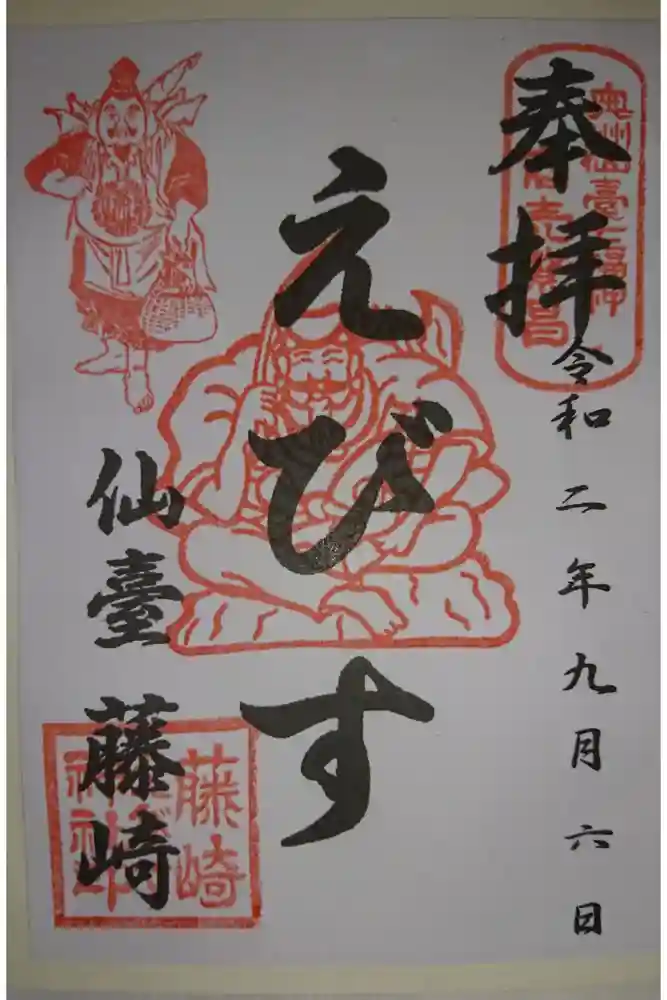 奉拝
奥州仙臺七福神
商売繁昌
令和二年九月六日
えびす
仙臺 藤崎
藤崎
えびす
神社